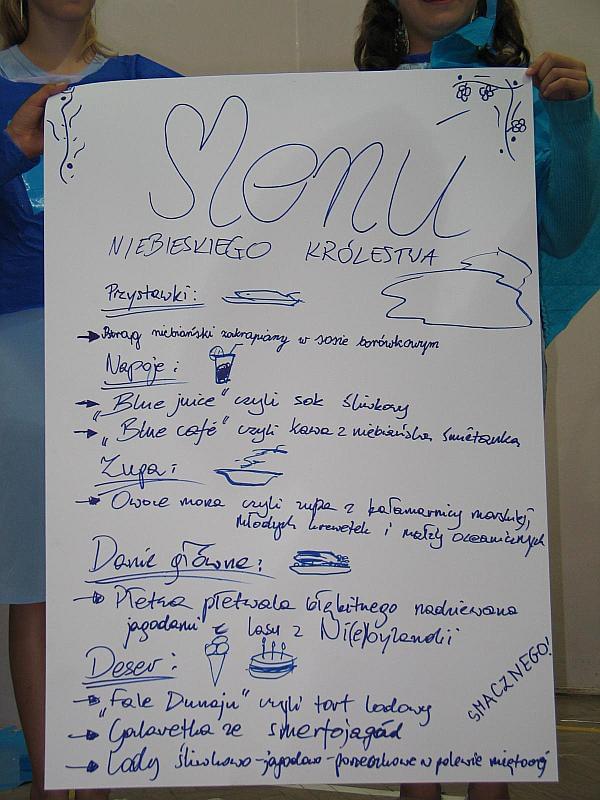 Menu
NIEBIESKIEGO KRÓLESTWA
Przystawki:
niebiański zakrapiany w sosie borówkowym
Napoje:
„Blue juice" czyli sok śliwkowy
„Blue café" czyli kawa z niebiańską śmietanką
Zupa:
Owoce moża czyli zupa z kałamarnicy morskiej,
młodych krewetek i małży oceanicznych
Danie główne:
Płetwa płetwala błękitnego nadziewana
jagodami z lasu z Ni(e)bylandii
Deser:
„Fale Dunaju" czyli tort lodowy
Galaretka ze smerfojagód
Lody śliwkowo-jagodowo-porzeczkowe w polewie miętowej
SMACZNEGO!